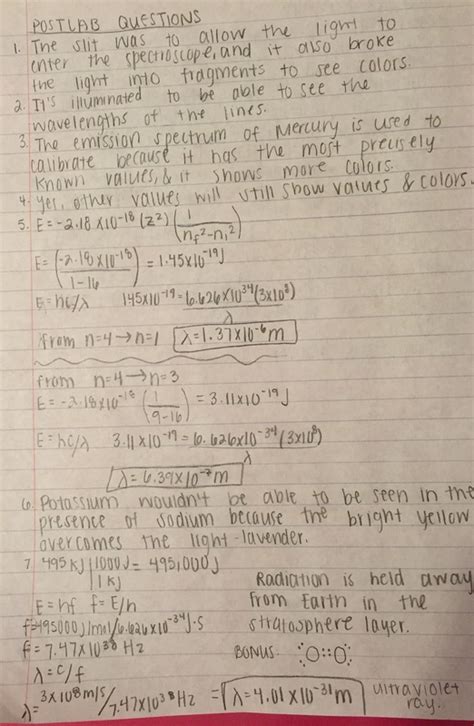 POSTLAB QUESTIONS
1. The slit was to allow the light to
enter the spectroscope, and it also broke
the light into fragments to see colors.
2. It's illuminated to be able to see the
wavelengths of the lines.
3. The emission spectrum of Mercury is used to
calibrate because it has the most precisely
known values, & it shows more colors.
4. Yes, other values will still show values & colors.
5. E = -2.18 X10^-18 (Z²) (1/(nf² - ni²))
E = ((-2.18 X10^-18)/(1-16)) = 1.45X10^-19 J
E = hc/λ 145X10^-19 = 6.626X10^34(3X10^8)/λ
from n=4→n=1 λ=1.37X10^-6 m
from n=4→n=3
E = -2.18X10^-18 (1/(9-16)) = 3.11X10^-19 J
E = hc/λ 3.11X10^-19 = 6.626X10^-34 (3X10^8)/λ
λ = 6.39X10^-7 m
6. Potassium wouldn't be able to be seen in the
presence of sodium because the bright yellow
overcomes the light-lavender.
7. 495 KJ | 1000J / 1 KJ = 495,000J
E = hf f = E/h
f = 495000 J/mol / 6.626X10^-34 J·S
f = 7.47X10^38 Hz
λ = c/f
λ = 3X10^8 m/s / 7.47X10^38 Hz = λ = 4.01 X10^-31 m ultraviolet
ray.
Radiation is held away
from Earth in the
stratosphere layer.
BONUS: :O::O: